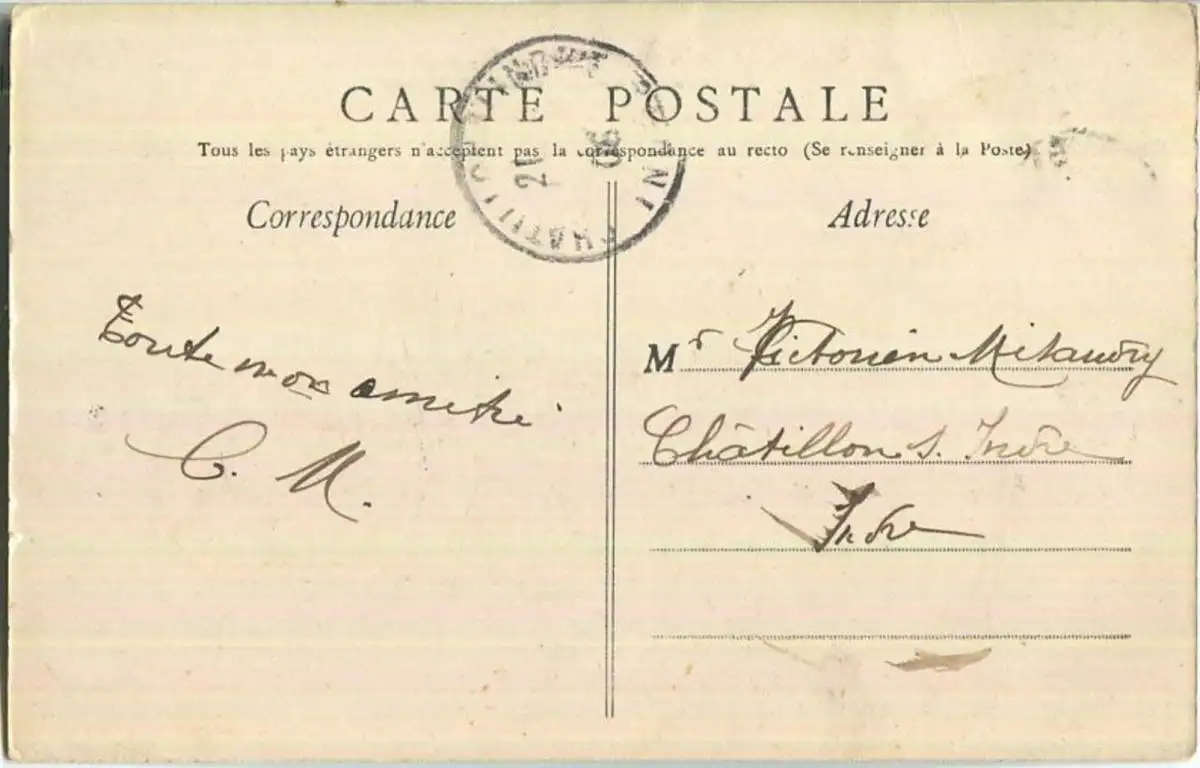 CARTE POSTALE
Tous les pays étrangers n'acceptent pas la correspondance au recto (Se renseigner à la Poste)
Correspondance
Adresse
Toute mon amitié
C. M.
Mr Victorien
Châtillon s. Indre
Indre
21
06